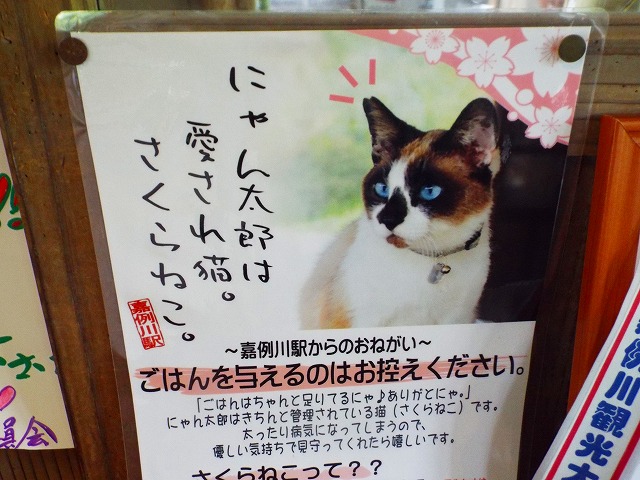 にゃん太郎は
愛され猫。
さくらねこ。
嘉例川駅
～嘉例川駅からのおねがい～
ごはんを与えるのはお控えください。
「ごはんはちゃんと足りてるにゃ♪ありがとにゃ。」
にゃん太郎はきちんと管理されている猫（さくらねこ）です。
太ったり病気になってしまうので、
優しい気持ちで見守ってくれたら嬉しいです。
さくらねこって？？
例川観光大
員会